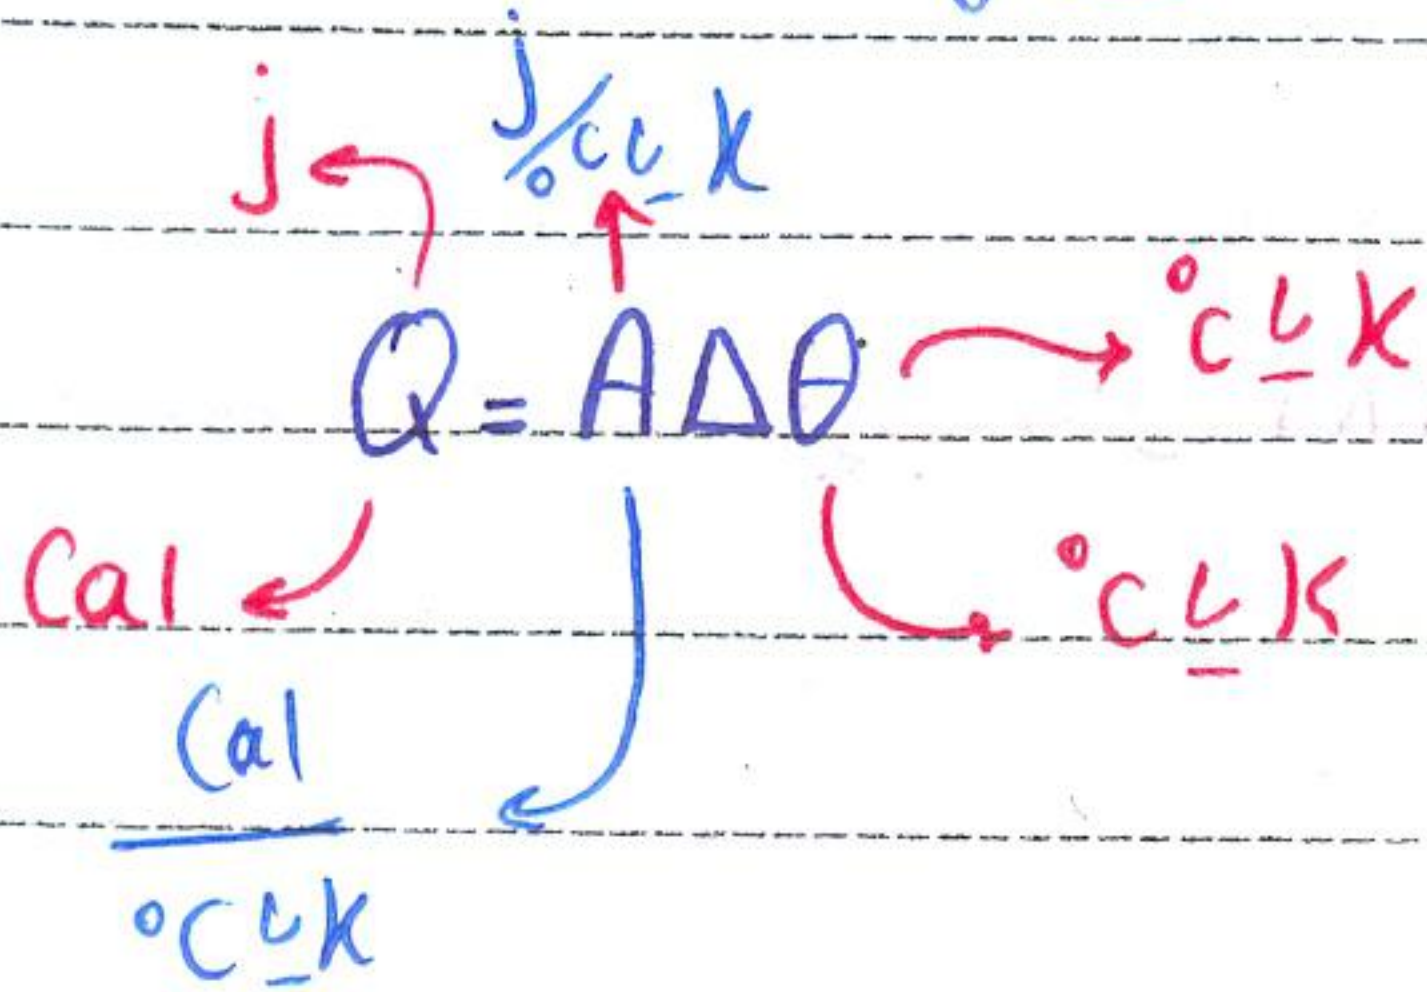 j
j/°C یا K
Q = A Δ θ
°C یا K
Cal
°C یا K
Cal
°C یا K